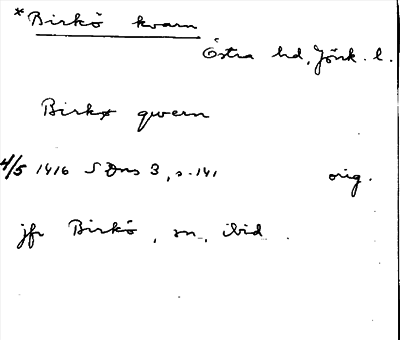 *Birkö kvarn
Östra hd, Jönk. l.
Birkø qwern
4/5 1416 SDns 3, s. 141 orig.
jfr Birkö, sn, ibid.